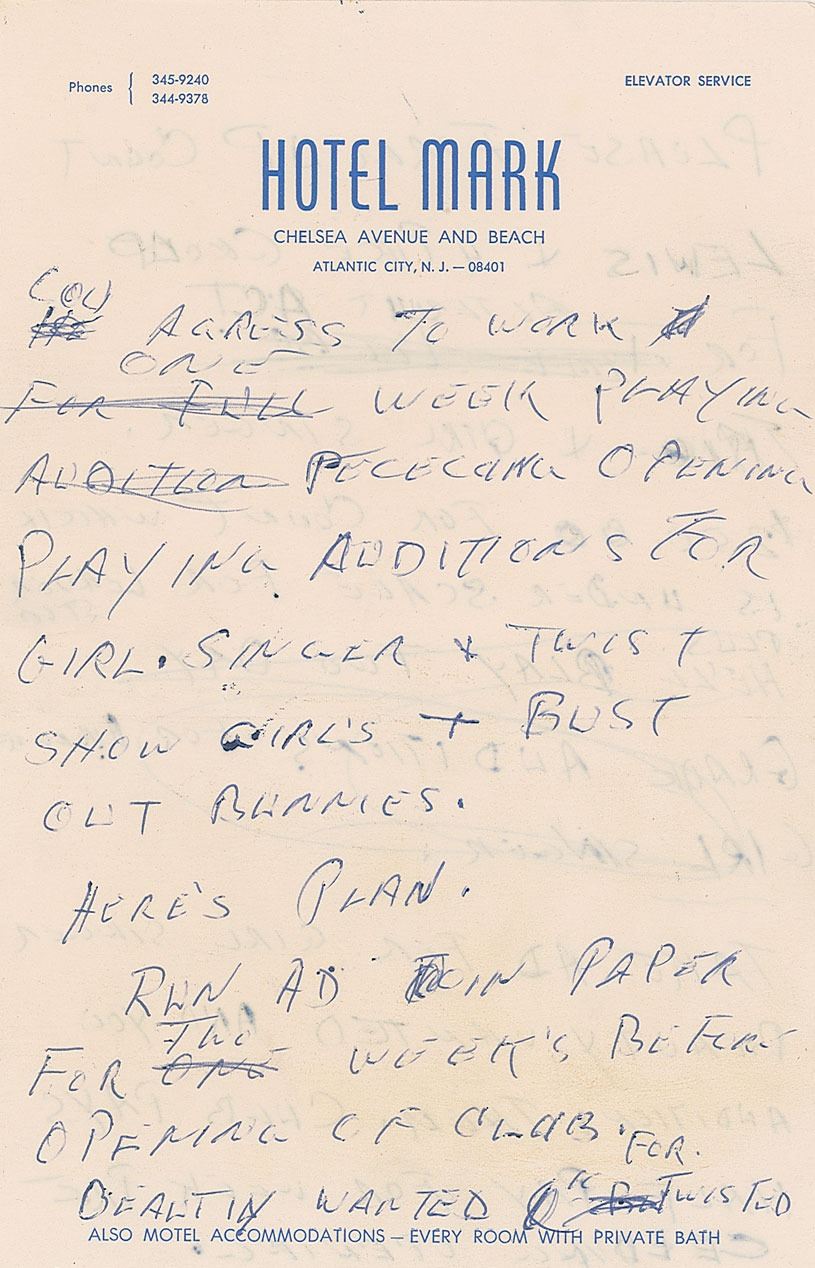 Phones { 345-9240
344-9378
ELEVATOR SERVICE
HOTEL MARK
CHELSEA AVENUE AND BEACH
ATLANTIC CITY, N. J. — 08401
LOU
AGREESS TO WORK
ONE
FOR FULL WEEK PLAYING
AUDITION PECECING OPENING
PLAYING AUDITIONS FOR
GIRL. SINGER & TWIST
SHOW GIRL'S + BUST
OUT BUNNIES.
HERE'S PLAN.
RUN AD IN PAPER
TWO
FOR ONE WEEK'S BEFORE
OPENING OF CLUB. FOR.
WANTED TWISTED
ALSO MOTEL ACCOMMODATIONS — EVERY ROOM WITH PRIVATE BATH